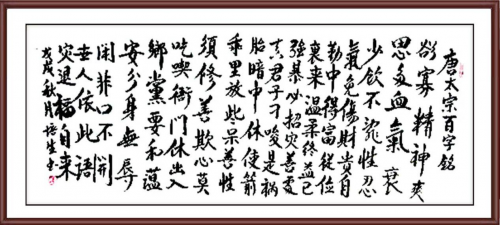 唐太宗百字銘
欲寡精神爽
思多血氣衰
少飲不亂性忍
氣免傷財貴自
勤中得富從儉
裏来温柔終益己
強暴必招灾善處
真君子刁唆是禍
胎暗中休使箭
乖里放些呆養性
須修善欺心莫
吃齋衙門休出入
鄉黨要和諧
安分身無辱
闲非口不開
世人依此語
灾退福自来
戊戌秋月培生书